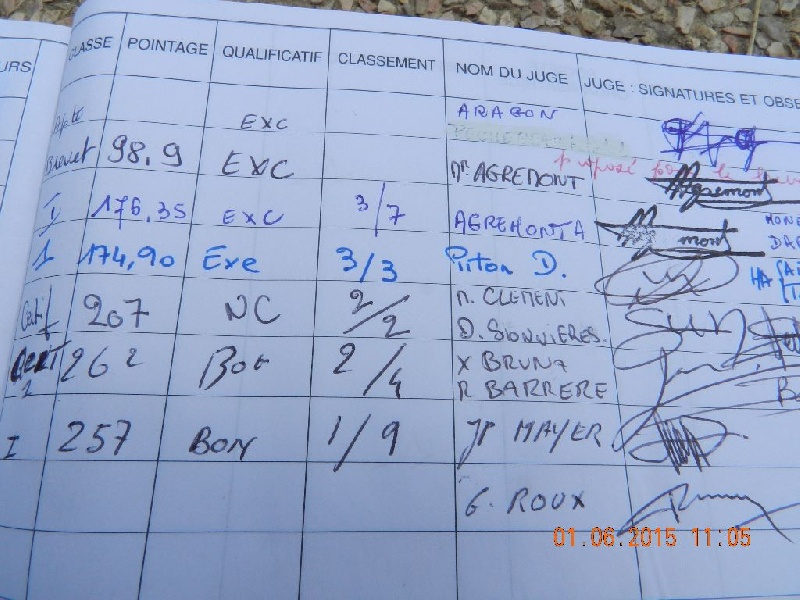 URS CLASSE POINTAGE QUALIFICATIF CLASSEMENT NOM DU JUGE JUGE : SIGNATURES ET OBSE
EXC ARAGON
proposé
Brevet 98,9 EXC Mr AGREMONT Agremont
I 176,35 EXC 3/7 AGREMONT A mont
1 174,90 Exe 3/3 Piton D. HA
207 NC 2/2 M. CLEMENT
D. SIONNIERES.
262 Bon 2/4 X BRUNA
R BARRERE
I 257 BON 1/9 JP MAYER
G. ROUX
01.06.2015 11:05